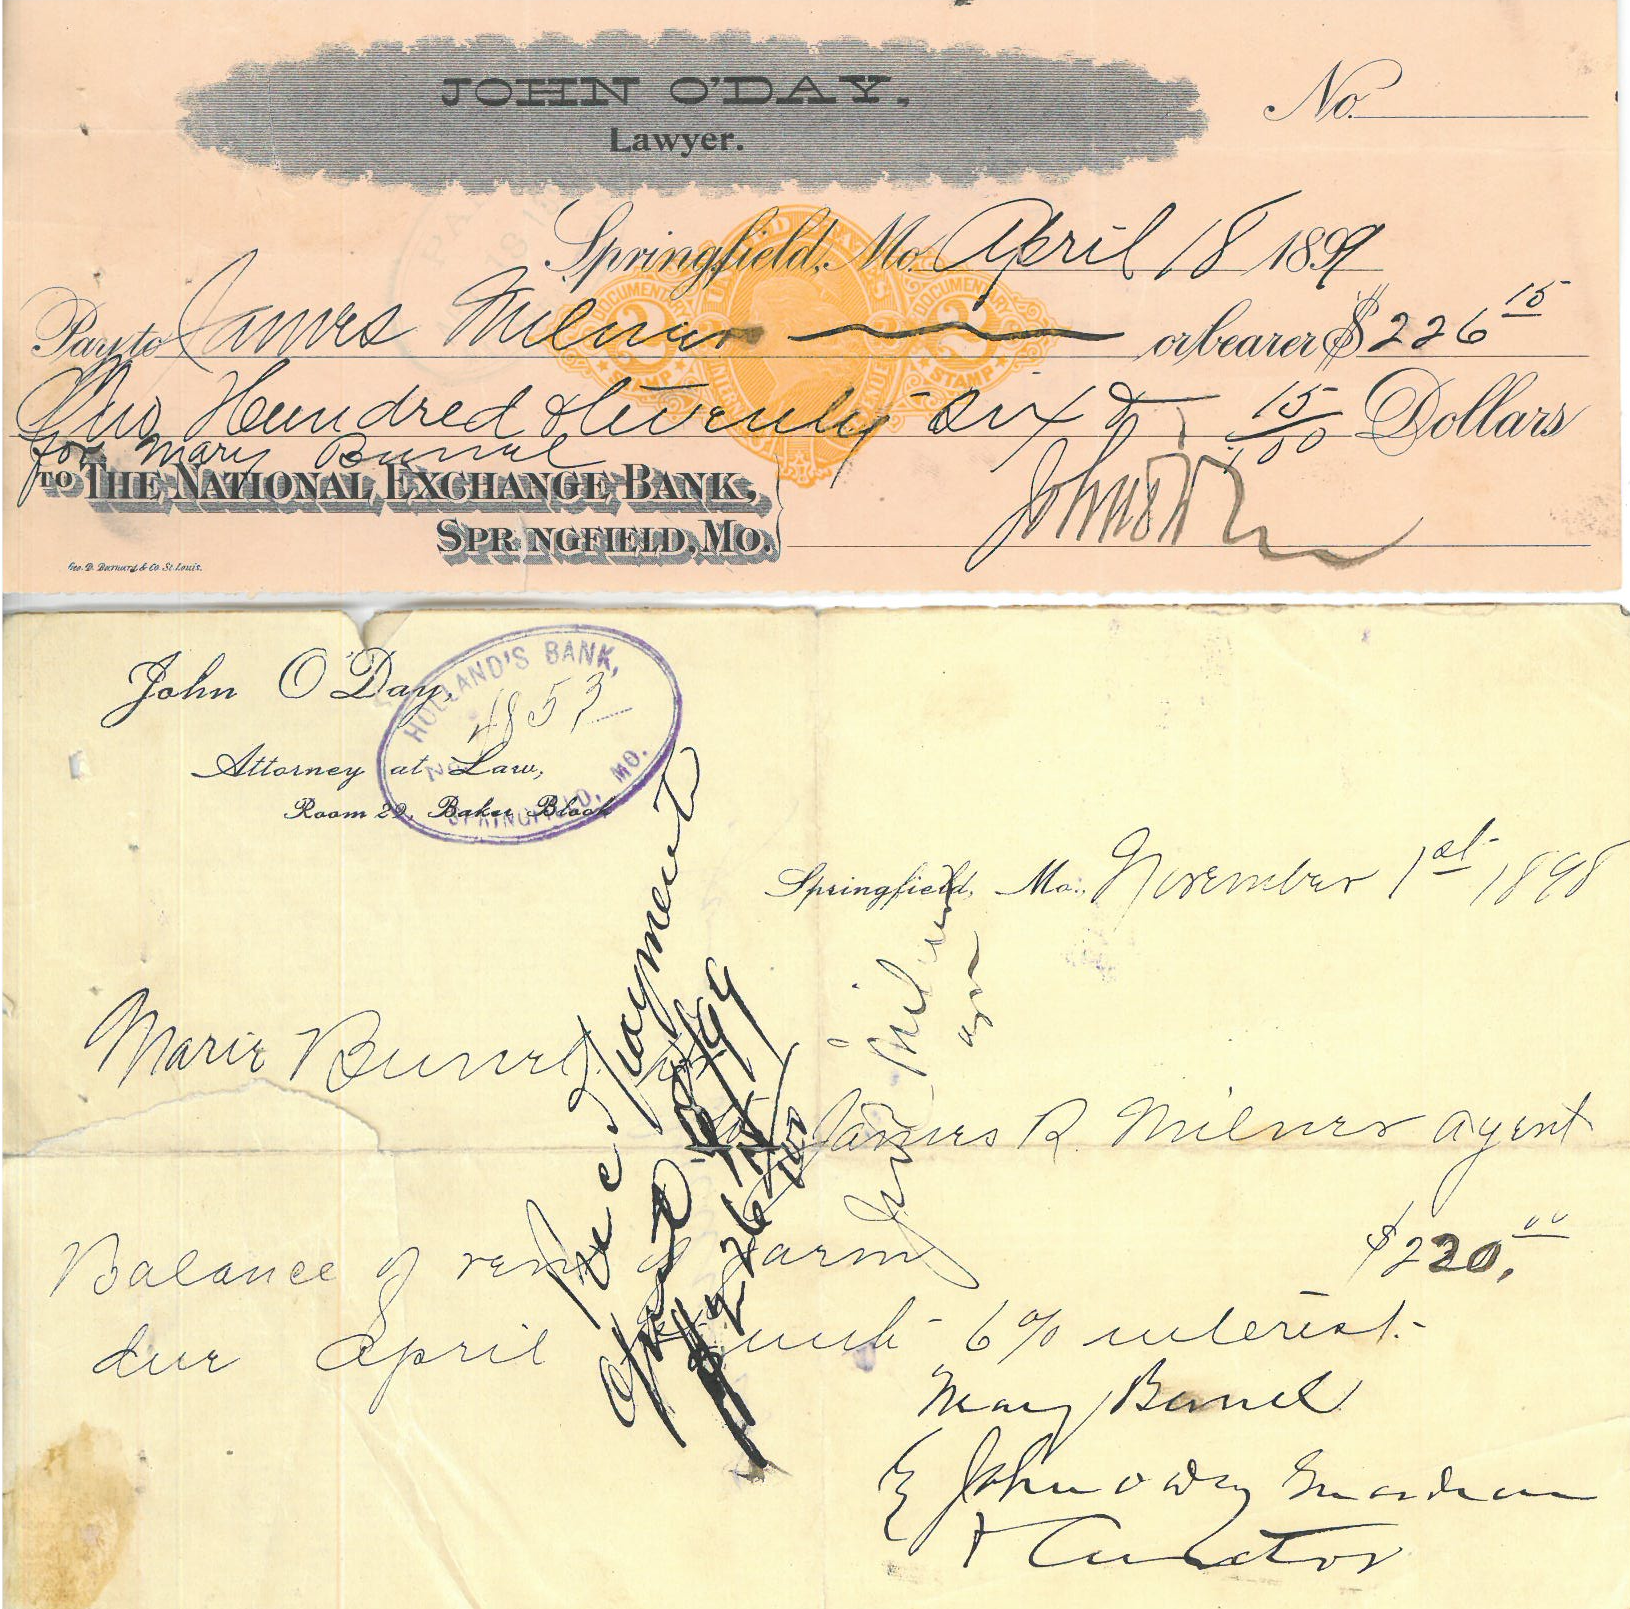 JOHN O'DAY,
Lawyer.
No.
Springfield, Mo. April 18 1899
Pay to James Milner or bearer $226 15
Two Hundred & twenty six & 15/100 Dollars
for Mary Burrel
TO THE NATIONAL EXCHANGE BANK,
SPRINGFIELD, MO.
Geo. D. Barnard & Co. St. Louis.
John O'Day
John O'Day,
Attorney at Law,
Room 29, Baker Block
HOLLAND'S BANK,
No 4853
SPRINGFIELD, MO.
Springfield, Mo., November 1st 1898
Marie Burrel
to James R. Milner agent
Balance of rent of farm $220.00
due April with 6% interest.
Mary Burrel
John O Day Guardian
& Curator
Rec payment
226 15/100
Jas Milner
agn